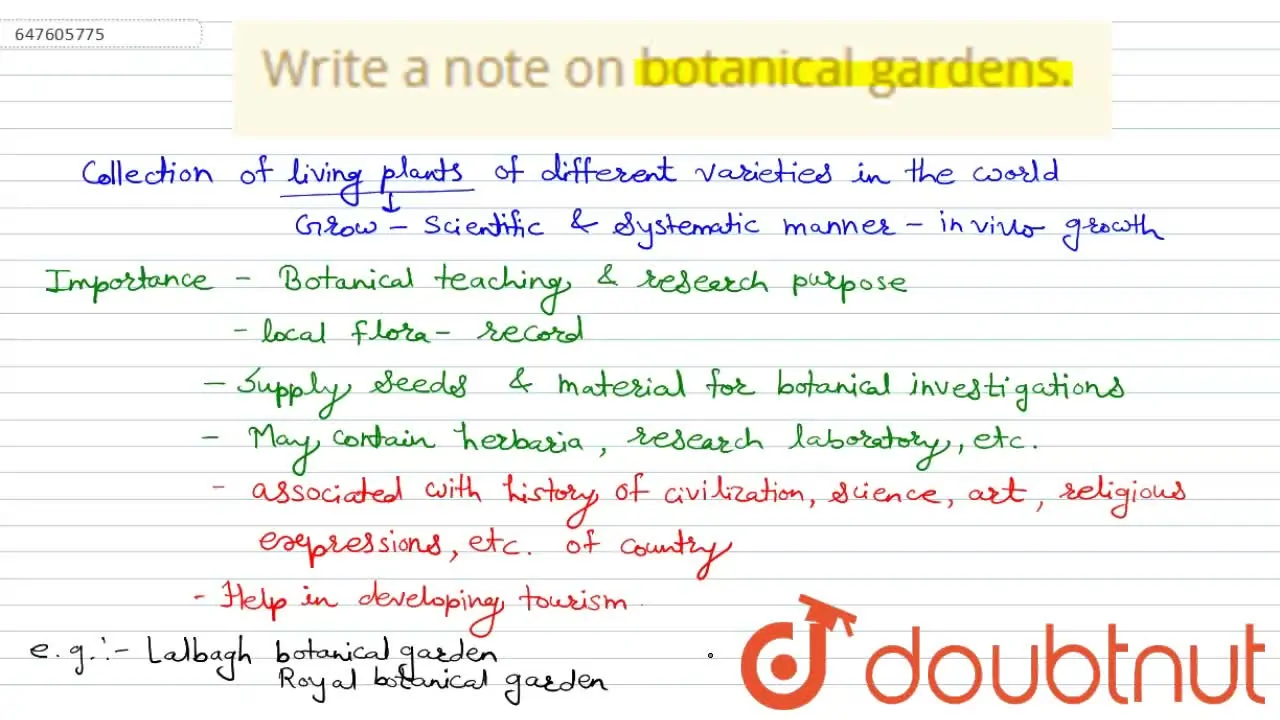 647605775
Write a note on botanical gardens.
Collection of living plants of different varieties in the world
Grow - scientific & systematic manner - in vivo growth
Importance - Botanical teaching & research purpose
- local flora - record
- Supply seeds & material for botanical investigations
- May contain herbaria, research laboratory, etc.
- associated with history of civilization, science, art, religious
expressions, etc. of country
- Help in developing tourism
e.g.:- Lalbagh botanical garden
Royal botanical garden
doubtnut